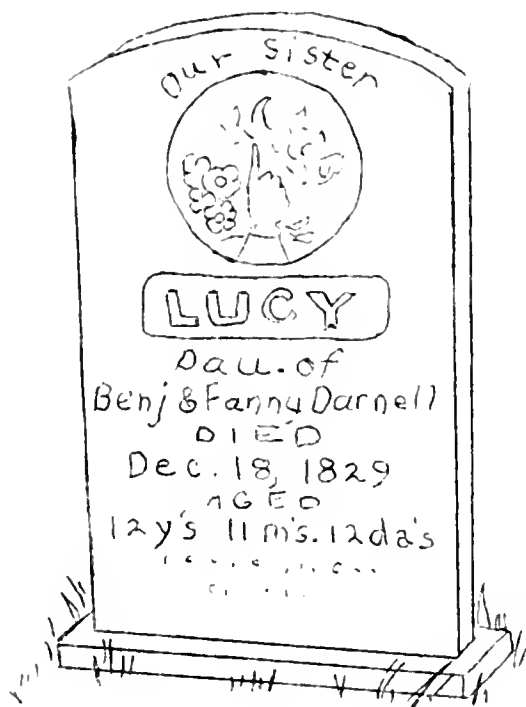 Our Sister
LUCY
Dau. of
Benj & Fanny Darnell
DIED
Dec. 18, 1829
AGED
12y's 11m's. 12da's